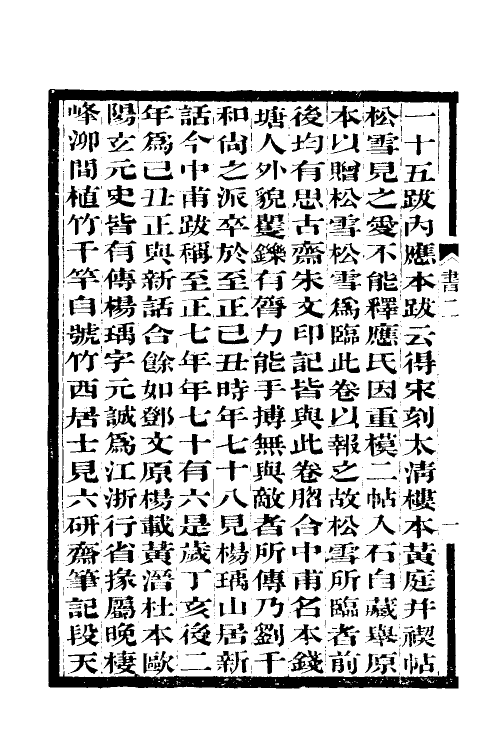 一十五跋內應本跋云得宋刻太淸樓本黃庭幷禊帖
松雪見之愛不能釋應氏因重模二帖入石自藏舉原
本以贈松雪松雪爲臨此卷以報之故松雪所臨者前
後均有思古齋朱文印記皆與此卷脗合中甫名本錢
塘人外貌矍鑠有膂力能手搏無與敵者所傳乃劉千
和尙之派卒於至正己丑時年七十八見楊瑀山居新
話今中甫跋稱至正七年年七十有六是歲丁亥後二
年爲己丑正與新話合餘如鄧文原楊載黃溍杜本歐
陽玄元史皆有傳楊瑀字元誠爲江浙行省掾屬晚棲
峰泖間植竹千竿自號竹西居士見六硏齋筆記段天
書二
一